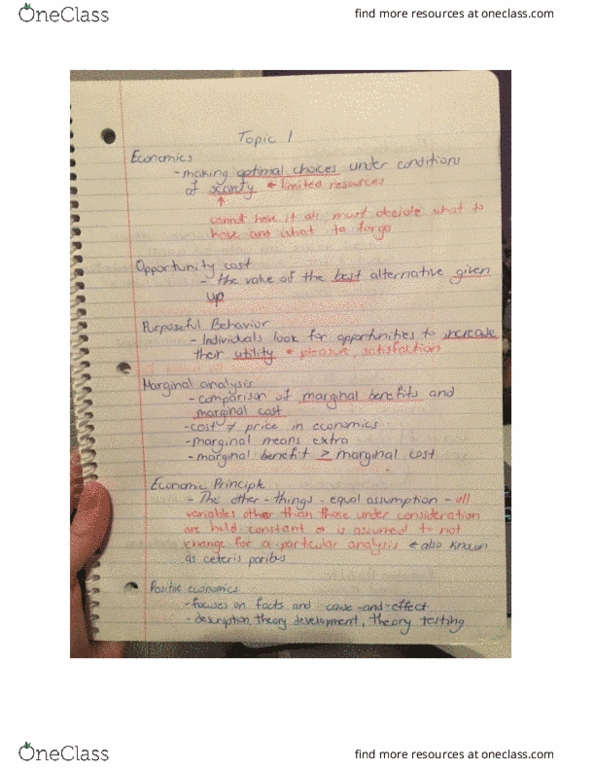 OneClass
find more resources at oneclass.com
Topic 1
Economics
- making optimal choices under conditions
of scarcity * limited resources
↑
cannot have it all, must decide what to
have and what to forgo
Opportunity cost
- the value of the best alternative given
up
Purposeful Behavior
- Individuals look for opportunities to increase
their utility * pleasure, satisfaction
Marginal analysis
- comparison of marginal benefits and
marginal cost
- cost ≠ price in economics
- marginal means extra
- marginal benefit > marginal cost
Economic Principle
- The other - things - equal assumption - all
variables other than those under consideration
are held constant or is assumed to not
change for a particular analysis * also known
as ceteris paribus
Positive economics
- focuses on facts and cause-and-effect
- description, theory development, theory testing
OneClass
find more resources at oneclass.com